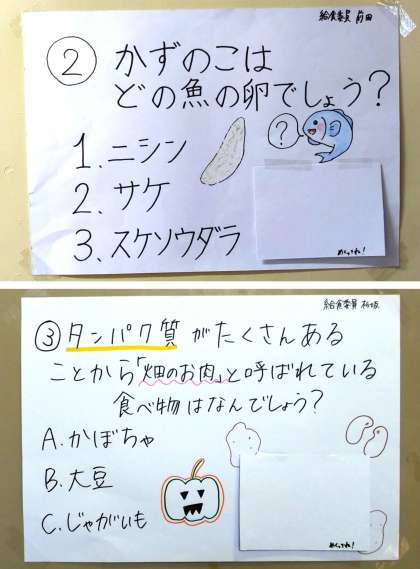 給食委員 前田
② かずのこは
どの魚の卵でしょう?
?
1. ニシン
2. サケ
3. スケソウダラ
めくってね!
給食委員
③ タンパク質がたくさんある
ことから「畑のお肉」と呼ばれている
食べ物はなんでしょう?
A. かぼちゃ
B. 大豆
C. じゃがいも
めくってね!